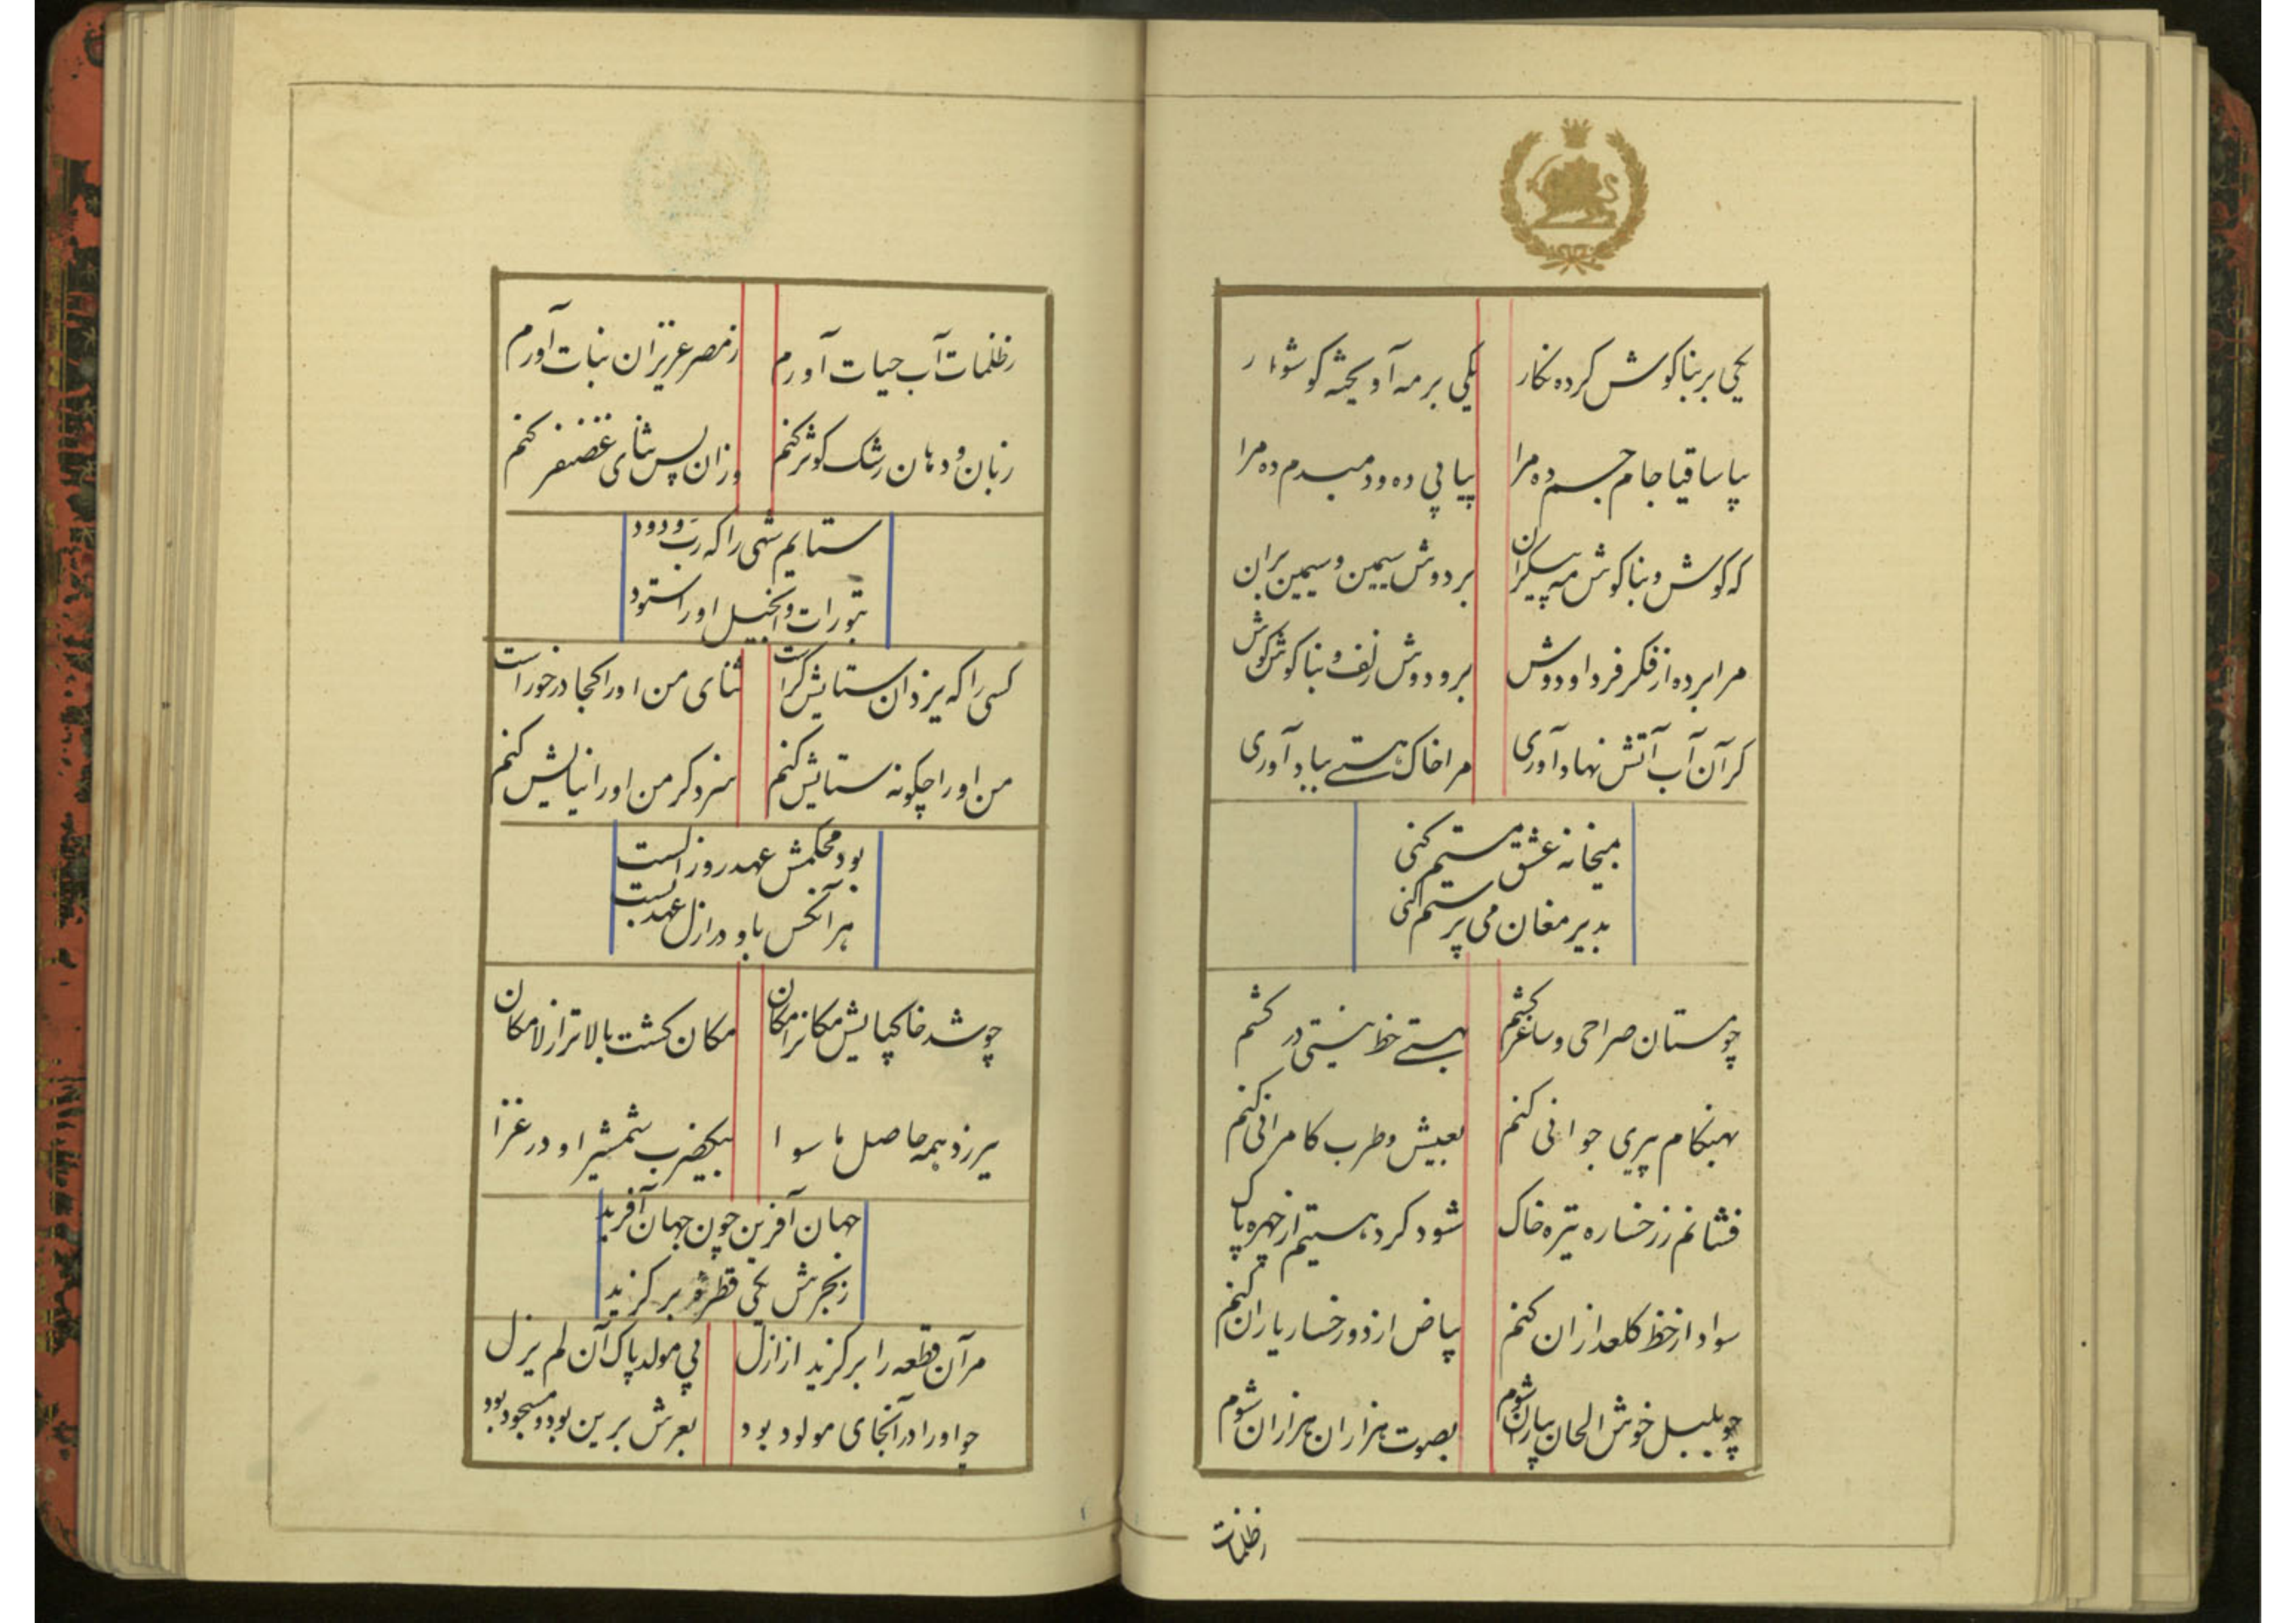 یکی بر بناکوش کرده نکار یکی بر مه آویخته کوشوار
بیا ساقیا جام جم ده مرا پیاپی ده و دمبدم ده مرا
که کوش و بناکوش مه پیکران بر دوش سیمین و سیمین بران
مرا برده از فکر فردا و دوش بر و دوش زلف و بناکوش کوش
کر آن آب آتش نهاد آوری مرا خاک هستی بباد آوری
میخانه عشق مستم کنی
بدیر مغان می پرستم کنی
چو مستان صراحی و ساغر کشم بهستی خط نیستی در کشم
بهنکام پیری جوانی کنم بعیش و طرب کامرانی کنم
فشانم ز رخساره تیره خاک شود کرد هستیم از چهره پاک
سواد از خط کلعذاران کنم بیاض از دو رخسار یاران کنم
چو بلبل خوش الحان بباران شوم بصوت هزاران هزاران شوم
زظلمات
زظلمات آب حیات آورم ز مصر عزیزان نبات آورم
زبان و دهان رشک کوثر کنم وزان پس ثنای غضنفر کنم
ستایم شهی را که رب ودود
بتورات و انجیل او را ستود
کسی را که یزدان ستایش کر است ثنای من او را کجا درخور است
من او را چکونه ستایش کنم سزد کر من او را نیایش کنم
بود محکمش عهد روز الست
هر آنکس باو در ازل عهد بست
چو شد خاکپایش مکان را مکان مکان کشت بالاتر از لامکان
نیرزد همه حاصل ما سوا بیکضرب شمشیر او در غزا
جهان آفرین چون جهان آفرید
ز بحرش یکی قطره بر کزید
مر آن قطعه را برکزید از ازل پی مولد پاک آن لم یزل
چو او را در آنجای مولود بود بعرش برین بود و مسجود بود